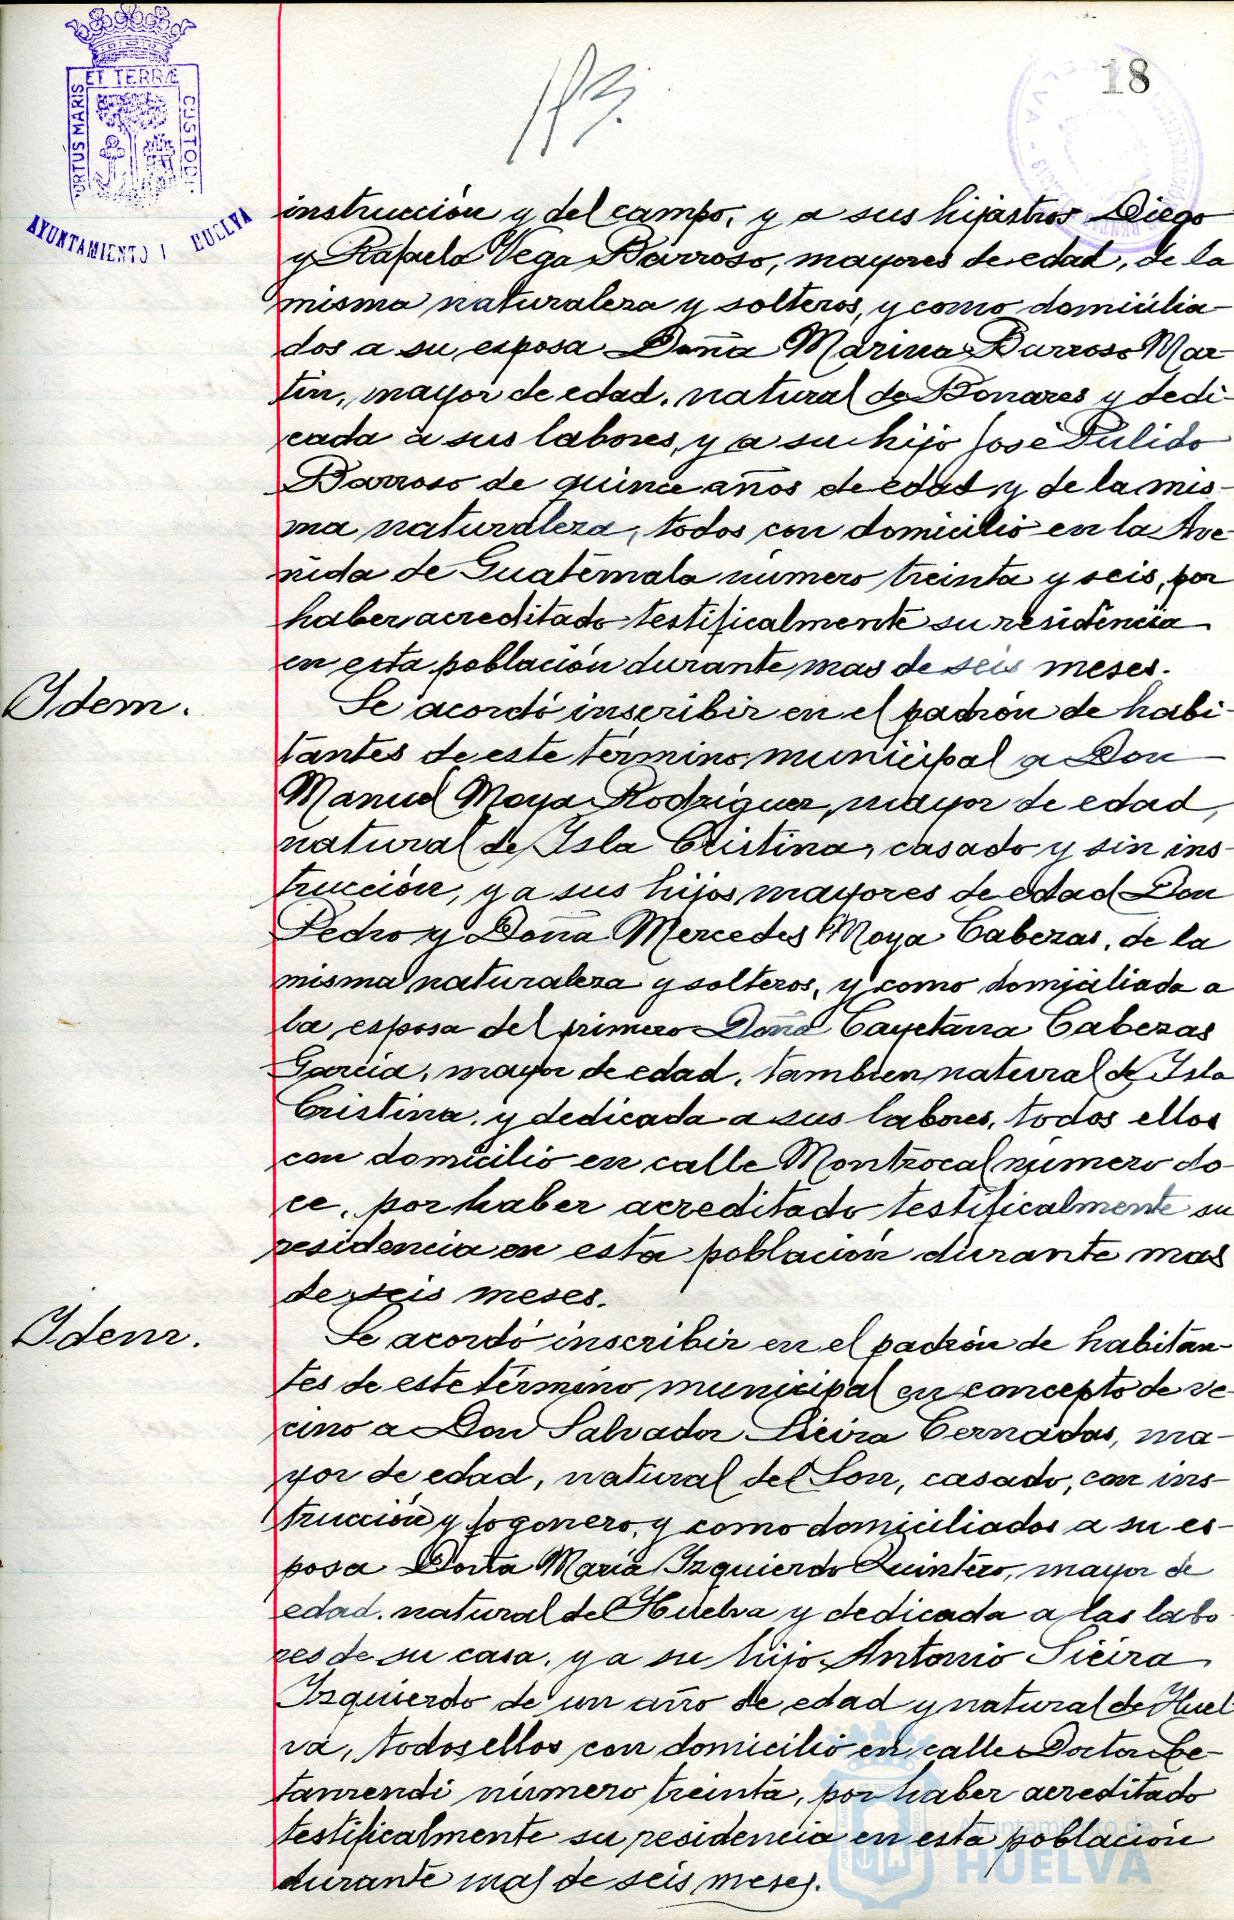 18
113.
ET TERRÆ
PORTUS MARIS
CUSTODI
AYUNTAMIENTO HUELVA
instrucción y del campo, y a sus hijastros Diego
y Rafaela Vega Barroso, mayores de edad, de la
misma naturaleza y solteros, y como domicilia-
dos a su esposa Doña Marina Barroso Mar-
tín, mayor de edad, natural de Bonares y dedi-
cada a sus labores, y a su hijo José Pulido
Barroso de quince años de edad y de la mis-
ma naturaleza, todos con domicilio en la Ave-
nida de Guatemala número treinta y seis, por
haber acreditado testificalmente su residencia
en esta población durante mas de seis meses.
Idem.
Se acordó inscribir en el padrón de habi-
tantes de este término municipal a Don
Manuel Moya Rodríguez, mayor de edad,
natural de Isla Cristina, casado y sin ins-
trucción, y a sus hijos mayores de edad Don
Pedro y Doña Mercedes Moya Cabezas, de la
misma naturaleza y solteros, y como domiciliada a
la esposa del primero Doña Cayetana Cabezas
García, mayor de edad, tambien natural de Isla
Cristina, y dedicada a sus labores, todos ellos
con domicilio en calle Montrocal número do-
ce, por haber acreditado testificalmente su
residencia en esta población durante mas
de seis meses.
Idem.
Se acordó inscribir en el padrón de habitan-
tes de este término municipal en concepto de ve-
cino a Don Salvador Sieira Cernadas, ma-
yor de edad, natural del Son, casado, con ins-
trucción y fogonero, y como domiciliados a su es-
posa Doña María Izquierdo Quintero, mayor de
edad, natural de Huelva y dedicada a las labo-
res de su casa, y a su hijo Antonio Sieira
Izquierdo de un año de edad y natural de Huel-
va, todos ellos con domicilio en calle Doctor Le-
tamendi número treinta, por haber acreditado
testificalmente su residencia en esta población
durante mas de seis meses.
Ayuntamiento de
HUELVA